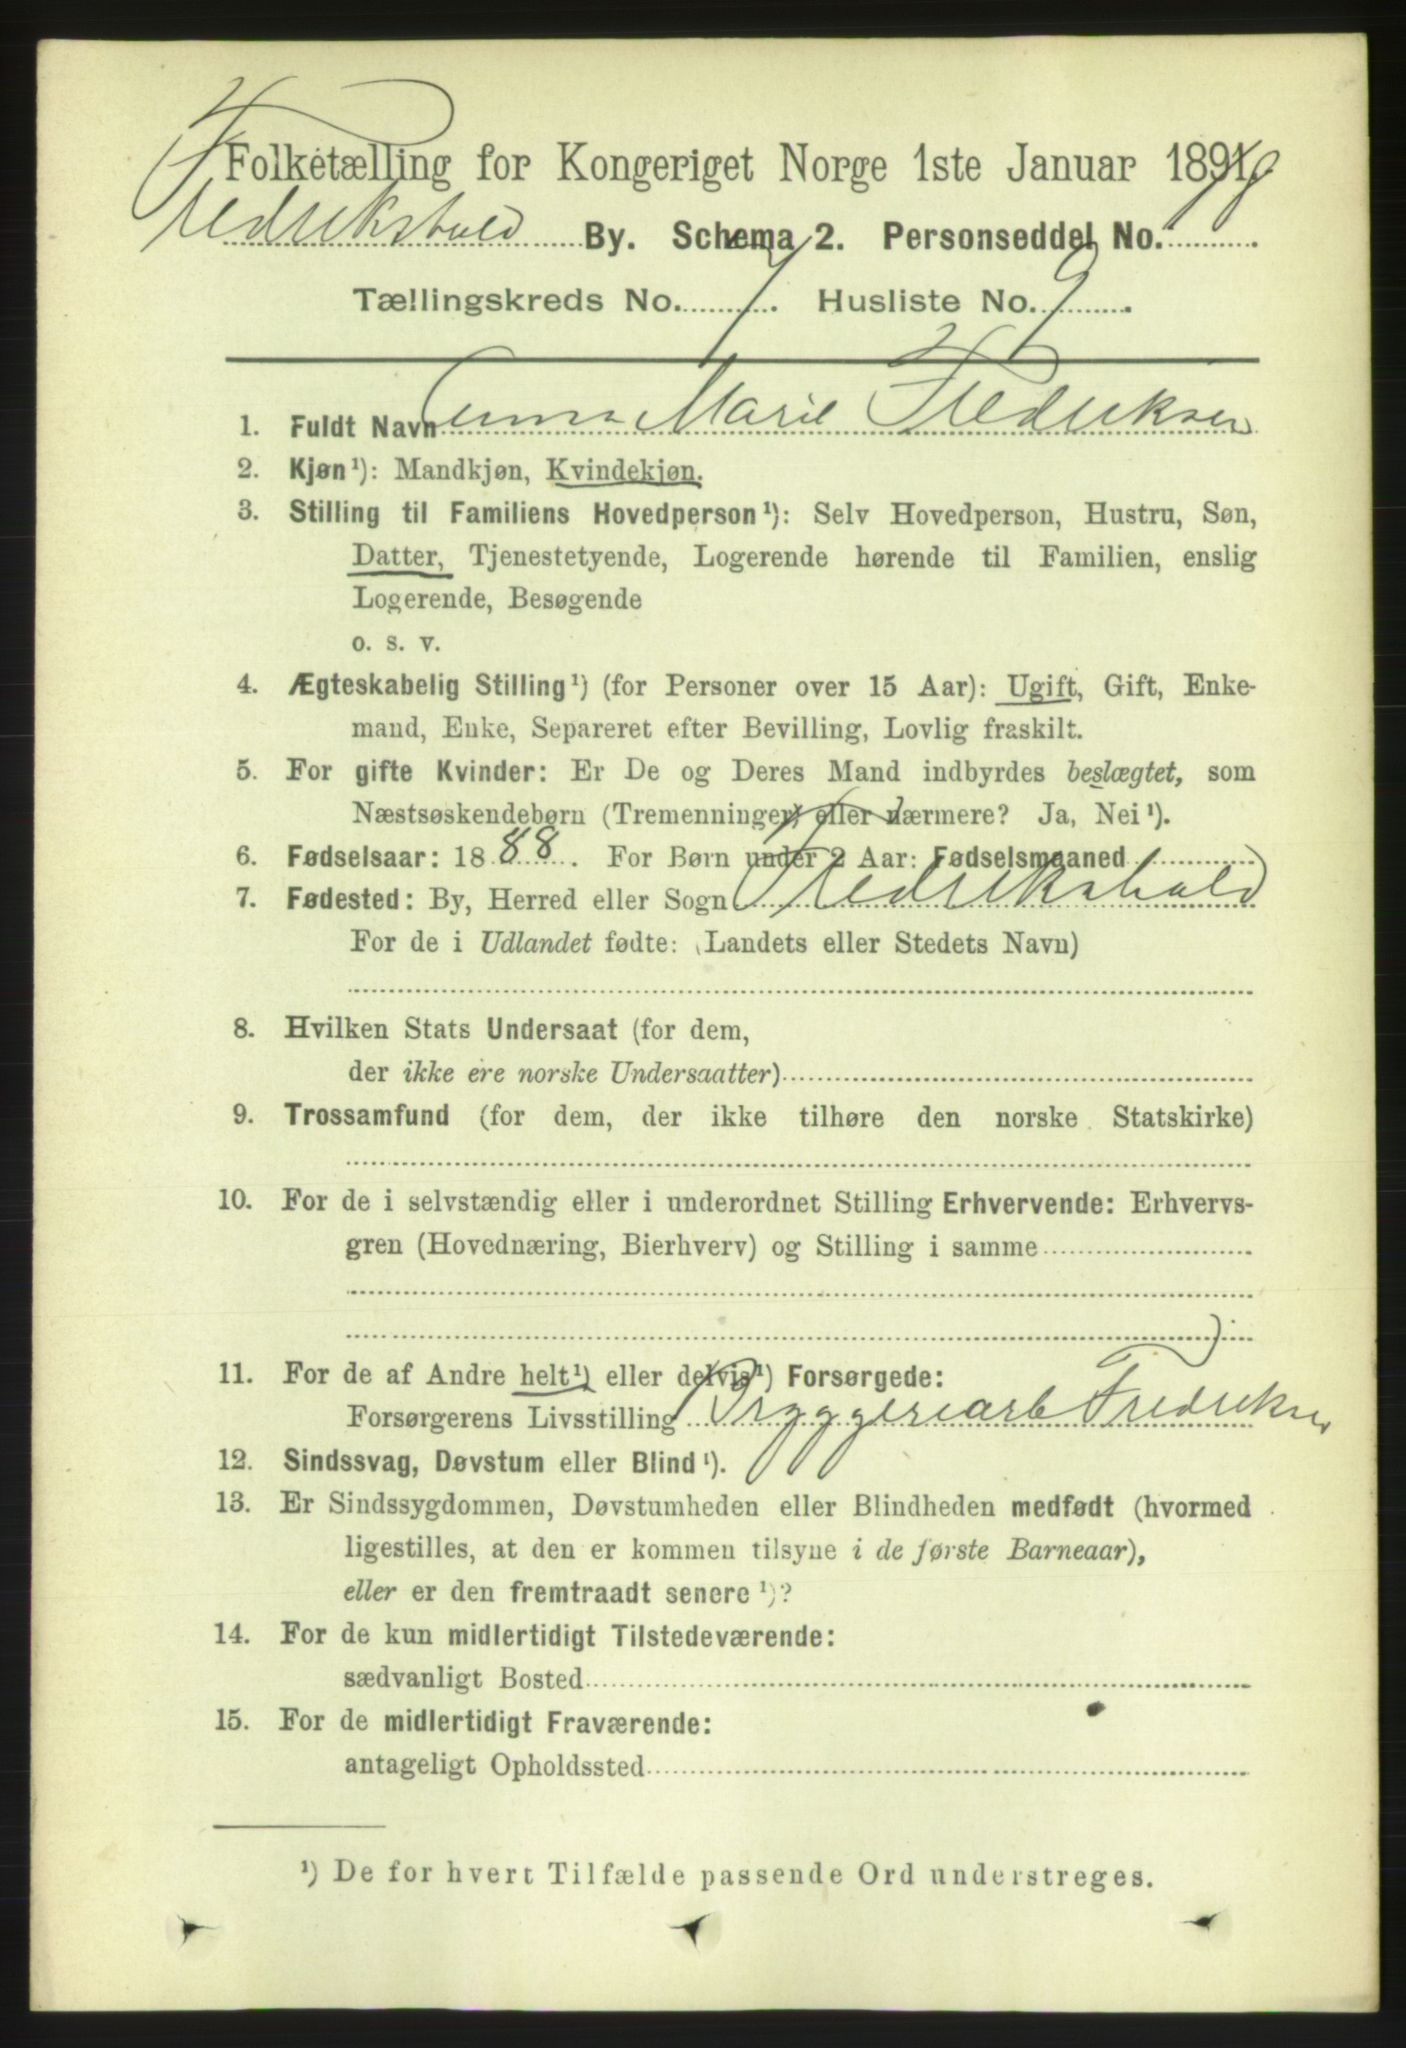 Folketælling for Kongeriget Norge 1ste Januar 1891.
Fredrikshald By. Schema 2. Personseddel No.
Tællingskreds No. 7. Husliste No. 9.
1. Fuldt Navn Anna Marie Fredriksen
2. Kjøn¹): Mandkjøn, Kvindekjøn.
3. Stilling til Familiens Hovedperson¹): Selv Hovedperson, Hustru, Søn,
Datter, Tjenestetyende, Logerende hørende til Familien, enslig
Logerende, Besøgende
o. s. v.
4. Ægteskabelig Stilling¹) (for Personer over 15 Aar): Ugift, Gift, Enke-
mand, Enke, Separeret efter Bevilling, Lovlig fraskilt.
5. For gifte Kvinder: Er De og Deres Mand indbyrdes beslægtet, som
Næstsøskendebørn (Tremenninger) eller nærmere? Ja, Nei¹).
6. Fødselsaar: 1888. For Børn under 2 Aar: Fødselsmaaned
7. Fødested: By, Herred eller Sogn Fredrikshald
For de i Udlandet fødte: (Landets eller Stedets Navn)
8. Hvilken Stats Undersaat (for dem,
der ikke ere norske Undersaatter)
9. Trossamfund (for dem, der ikke tilhøre den norske Statskirke)
10. For de i selvstændig eller i underordnet Stilling Erhvervende: Erhvervs-
gren (Hovednæring, Bierhverv) og Stilling i samme
11. For de af Andre helt¹) eller delvis¹) Forsørgede:
Forsørgerens Livsstilling Bryggeriarb Fredriksen
12. Sindssvag, Døvstum eller Blind¹).
13. Er Sindssygdommen, Døvstumheden eller Blindheden medfødt (hvormed
ligestilles, at den er kommen tilsyne i de første Barneaar),
eller er den fremtraadt senere¹)?
14. For de kun midlertidigt Tilstedeværende:
sædvanligt Bosted
15. For de midlertidigt Fraværende:
antageligt Opholdssted
¹) De for hvert Tilfælde passende Ord understreges.